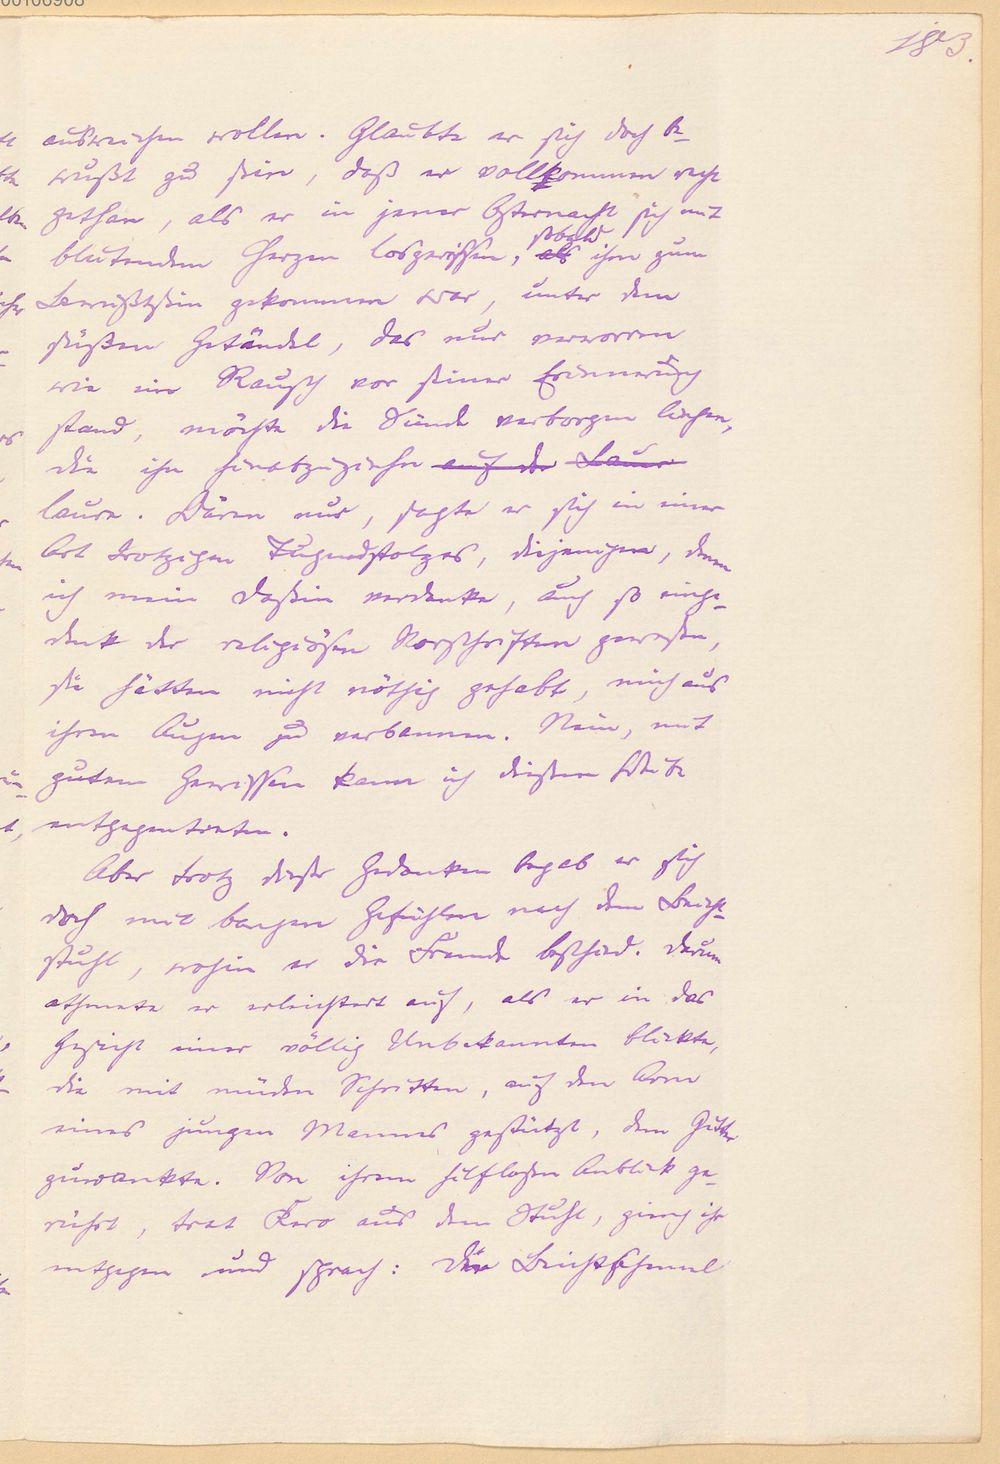 183.
ausweichen wollen. Glaubte er sich doch be-
wußt zu sein, daß er vollkommen recht
gethan, als er in jener Osternacht sich mit
blutendem Herzen losgerissen, sobald
als ihm zum
Bewußtsein gekommen war, unter dem
süßen Getändel, das nur verworren
wie ein Rausch vor seiner Erinnerung
stand, möchte die Sünde verborgen liegen,
die ihn hinabzuziehn auf der Lauer
laure. Wären nur, sagte er sich in einer
Art trotzigen Tugendstolzes, diejenigen, denen
ich mein Dasein verdanke, auch so einge-
denk der religiösen Vorschriften gewesen,
sie hätten nicht nöthig gehabt, mich aus
ihren Augen zu verbannen. Nein, mit
gutem Gewissen kann ich diesem Weibe
entgegentreten.
Aber trotz dieser Gedanken begab er sich
doch mit bangen Gefühlen nach dem Beicht-
stuhl, wohin er die Fremde beschied. Darum
athmete er erleichtert auf, als er in das
Gesicht einer völlig Unbekannten blickte,
die mit müden Schritten, auf den Arm
eines jungen Mannes gestützt, dem Gitter
zuwankte. Von ihrem hilflosen Anblick ge-
rührt, trat Kero aus dem Stuhl, gieng ihr
entgegen und sprach: Die Beichtschemel